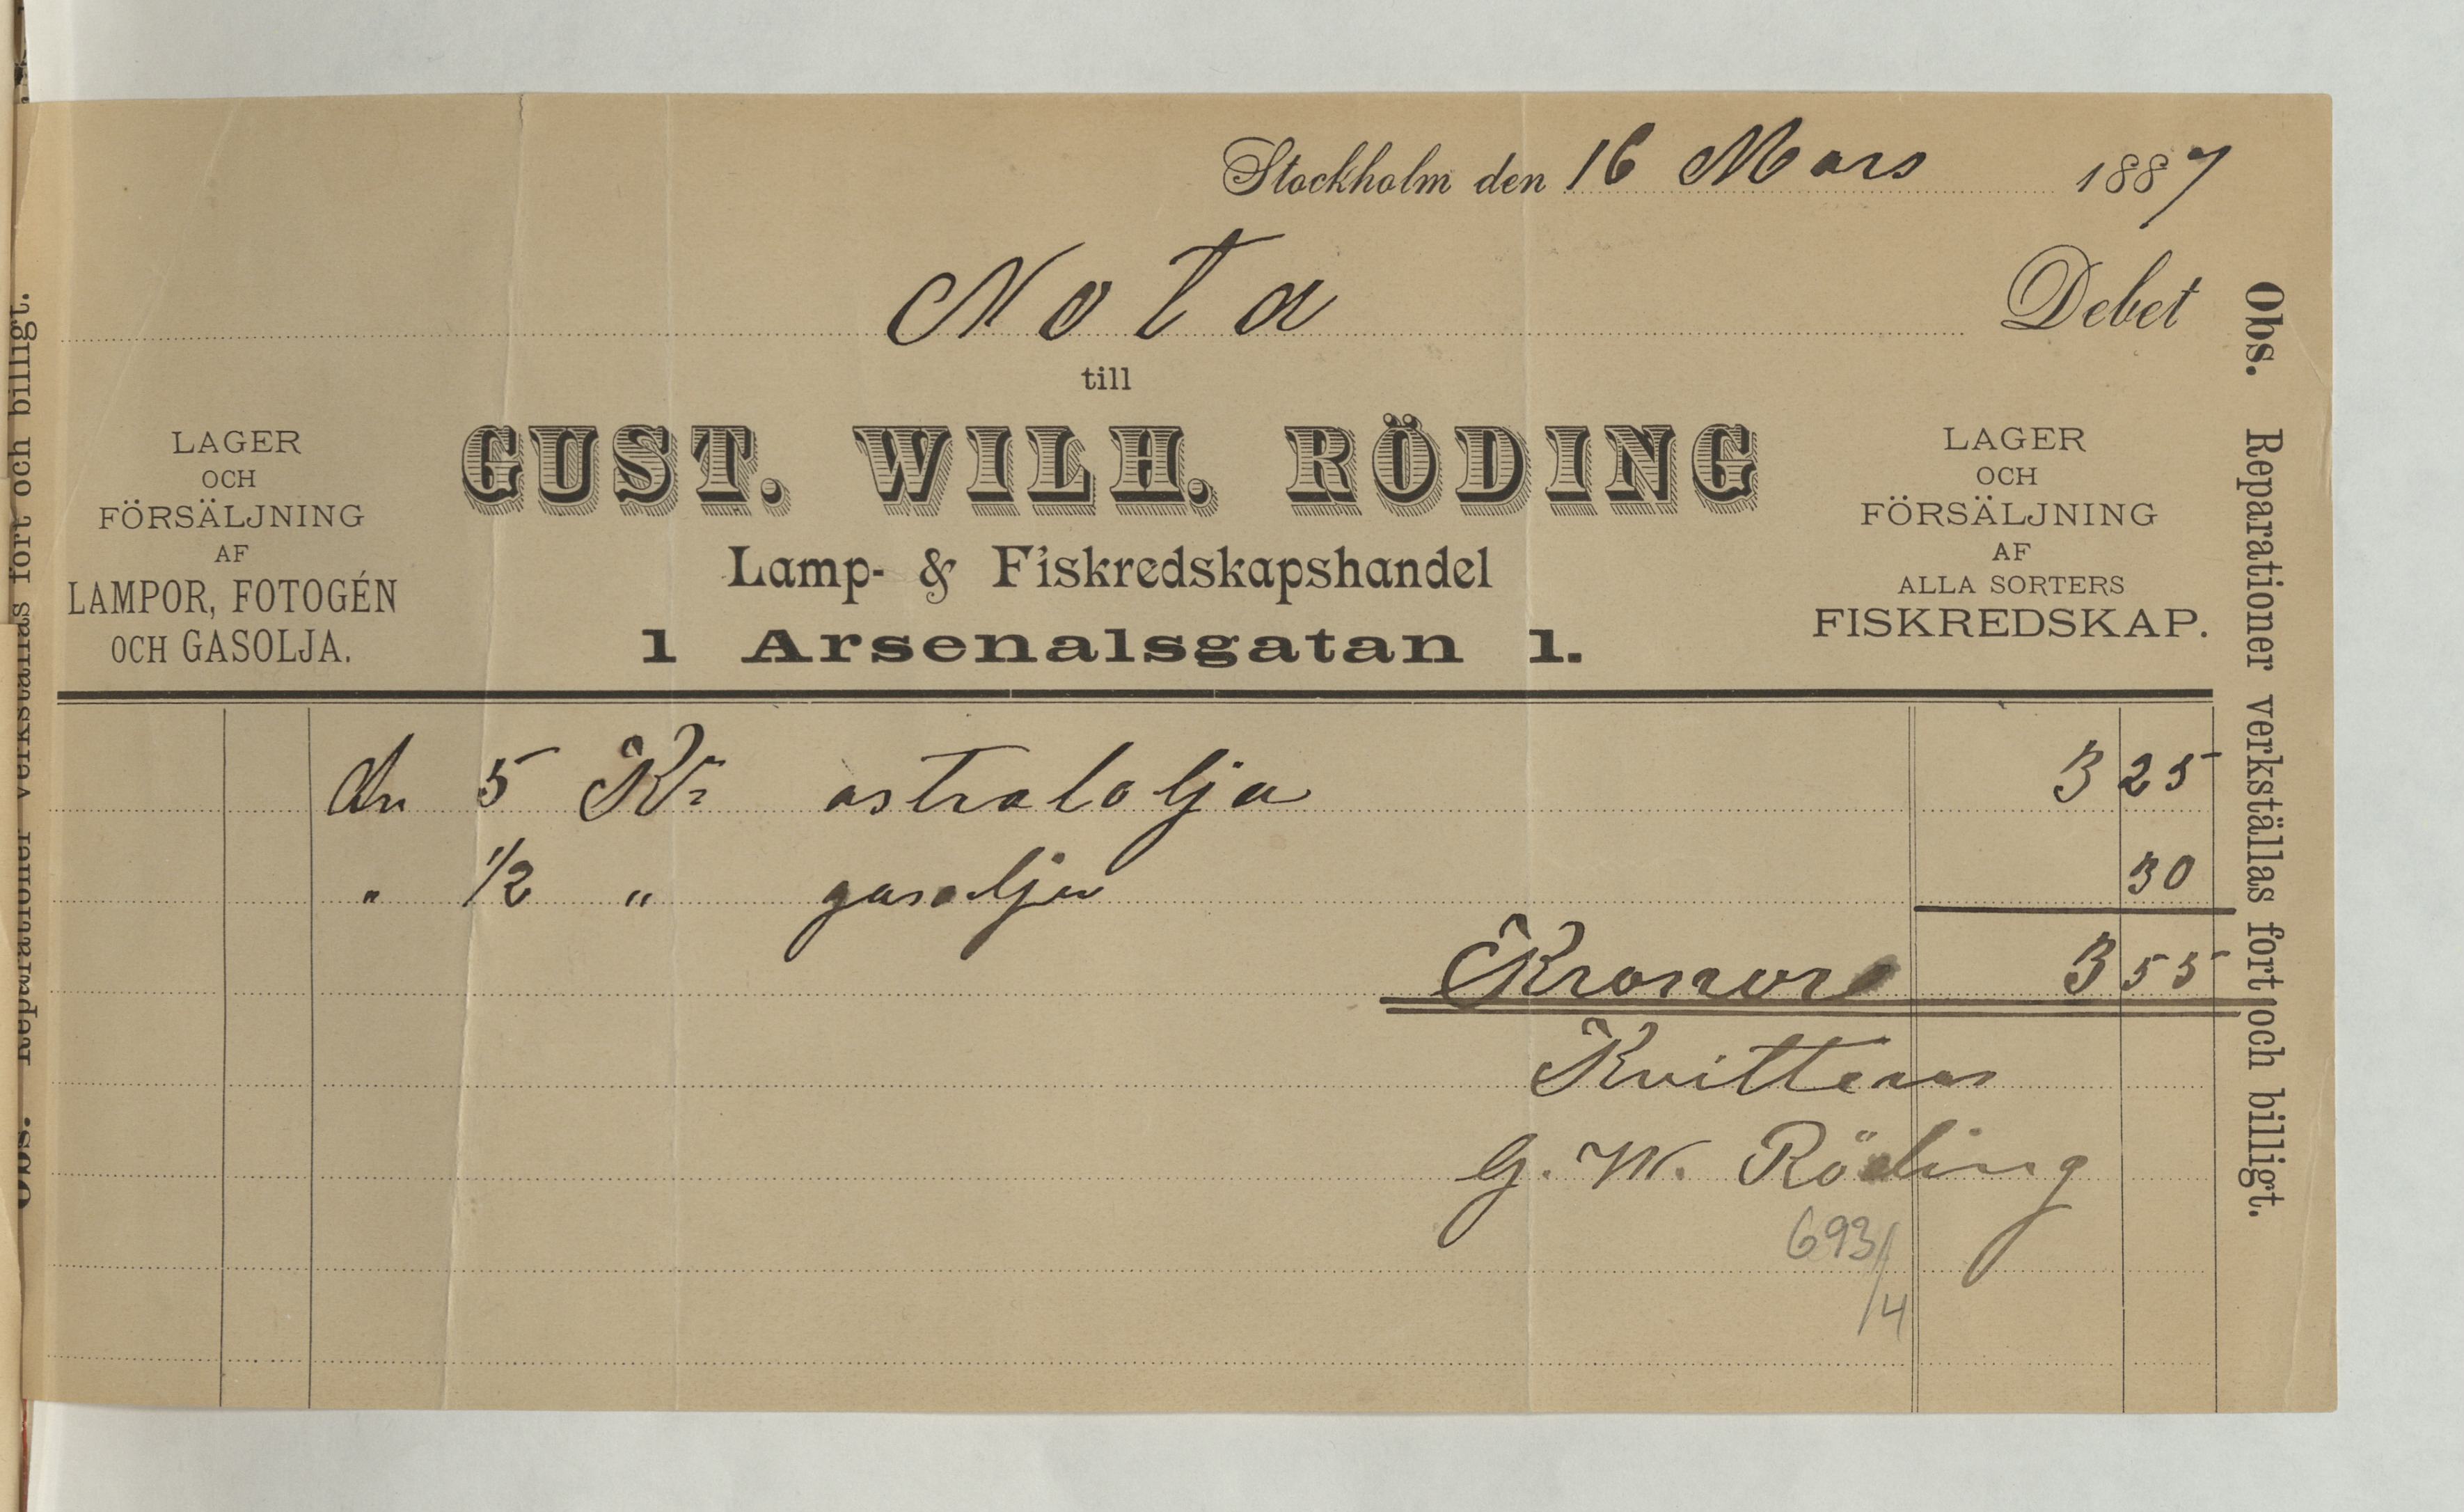 Stockholm den 16 Mars 1887
Nota Debet
till
GUST. WILH. RÖDING
Lamp- & Fiskredskapshandel
1 Arsenalsgatan 1.
LAGER
OCH
FÖRSÄLJNING
AF
LAMPOR, FOTOGÉN
OCH GASOLJA.
LAGER
OCH
FÖRSÄLJNING
AF
ALLA SORTERS
FISKREDSKAP.
5 Kr astralolja 3 25
" 1/2 " gasolja 30
Kronor 3 55
Kvitteras
G. W. Röding
693/
/4
Obs. Reparationer verkställas fort och billigt.
Obs. Reparationer verkställas fort och billigt.